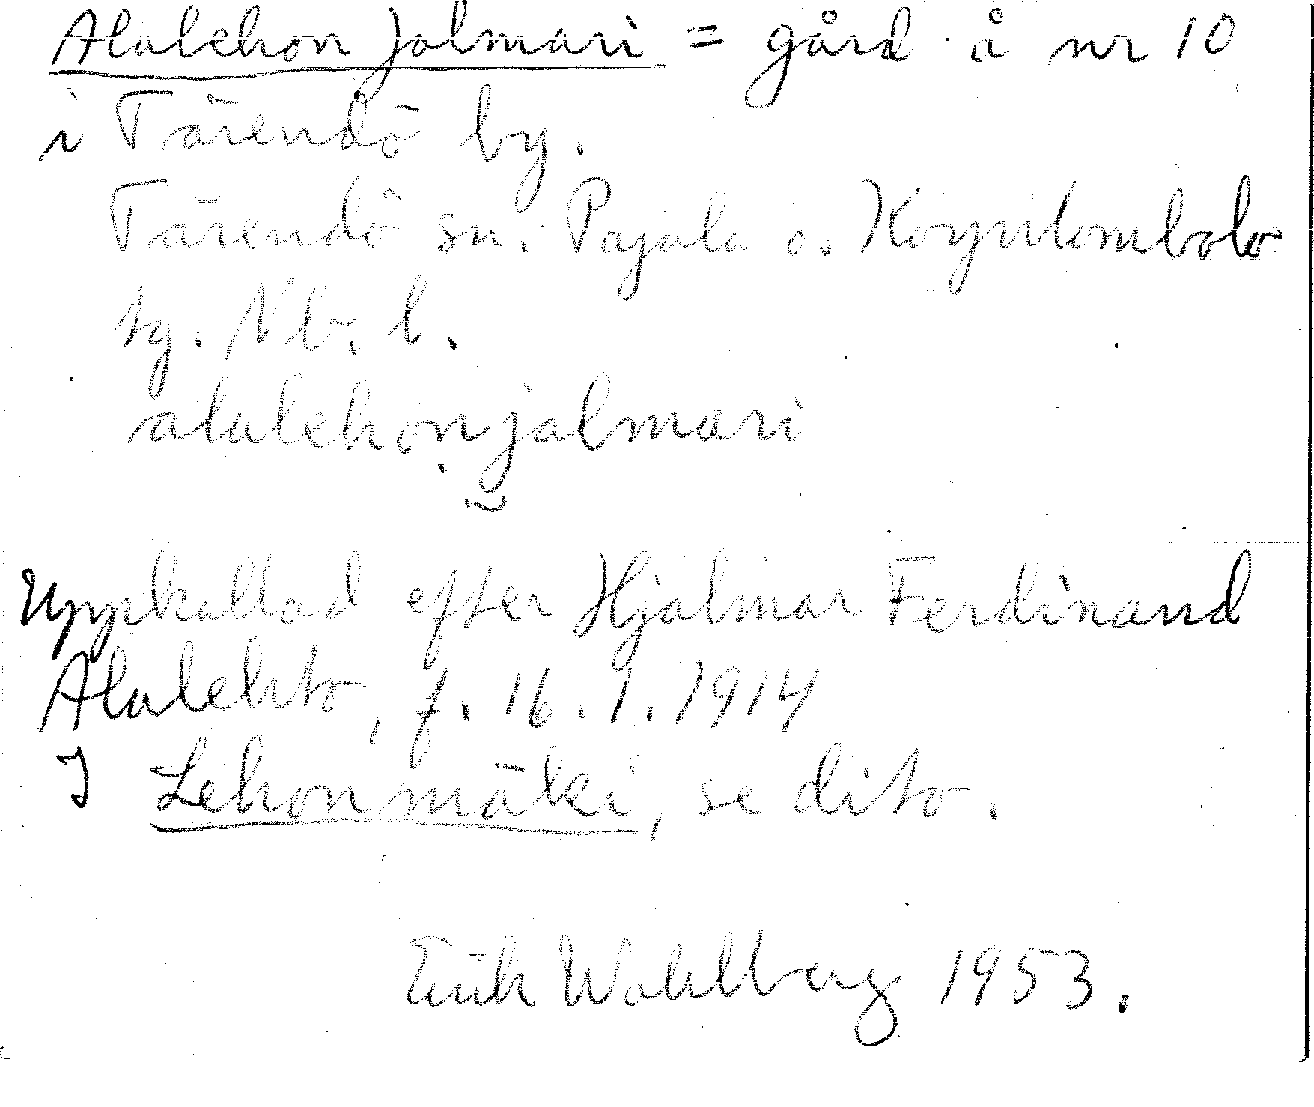 Alalehon Jalmari = gård å nr 10
i Tärendö by.
Tärendö sn. Pajala o. Korpilombolo
tg. Nb. l.
alalehonjalmari
Uppkallad efter Hjalmar Ferdinand
Alalehto, f. 16.1.1914
I Lehonmäki, se dito.
Erik Wahlberg 1953.